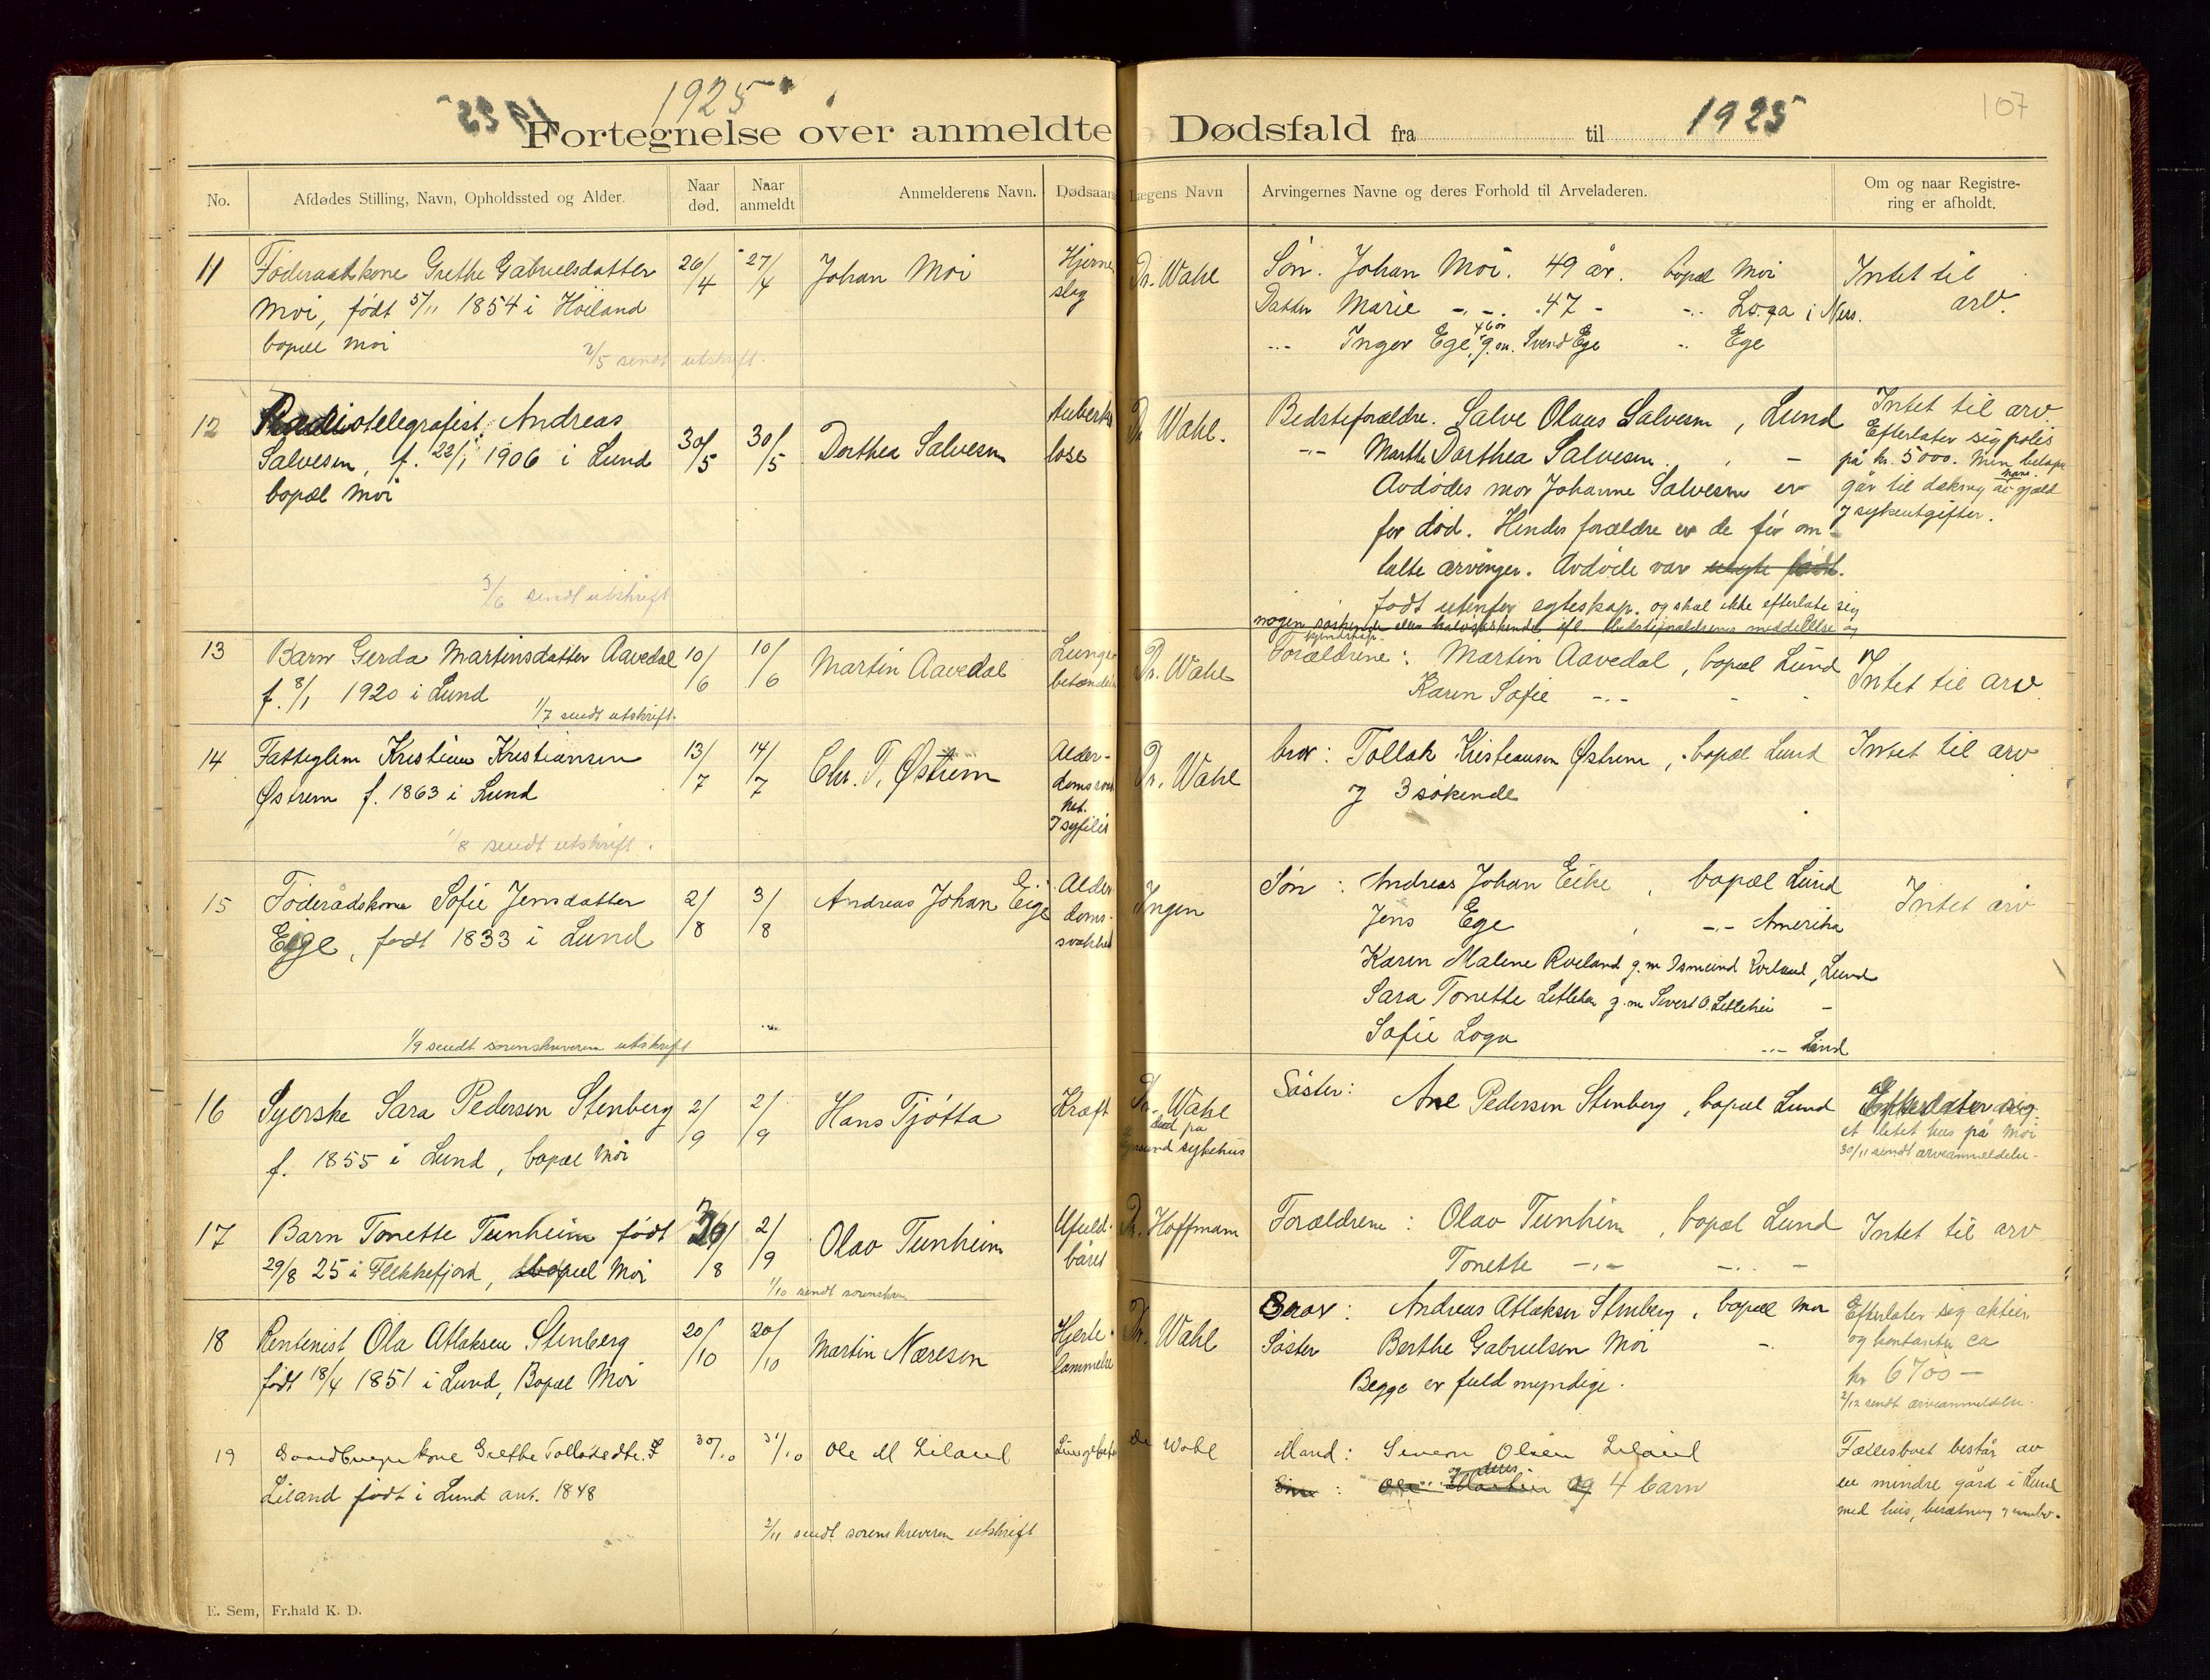 1925
1925
1925
107
Fortegnelse over anmeldte Dødsfald fra til
No.
Afdødes Stilling, Navn, Opholdssted og Alder.
Naar død.
Naar anmeldt
Anmelderens Navn.
Dødsaars
Lægens Navn
Arvingernes Navne og deres Forhold til Arveladeren.
Om og naar Registrering er afholdt.
11 Føderaadskone Grethe Gabrielsdatter
Moi, født 5/11 1854 i Høiland
bopæl Moi
2/5 sendt utskrift.
26/4 27/4 Johan Moi
Hjerne
slag
Dr. Wahl
Søn. Johan Moi. 49 år. bopæl Moi
Datter Marie -.-. 47 - -.. Loga i Nes.
-.- Inger Ege, 46 år g.m. Svend Ege .. Ege
Intet til
arv.
12 Radiotelegrafist Andreas
Salvesen, f. 22/1 1906 i Lund
bopæl Moi
3/6 sendt utskrift
30/5 30/5 Dorthea Salvesen
Tuberku
lose
Dr Wahl.
Bedsteforældre. Salve Olaus Salvesen, Lund
-.- Marthe Dorthea Salvesen. , -
Avdødes mor Johanne Salvesen er
før død. Hendes forældre er de før om-
talte arvinger. Avdøde var uegte født.
født utenfor egteskap. og skal ikke efterlate sig
nogen søskende eller halvsøskende ifl. bedsteforældrenes meddelelse og
kjendskap.
Intet til arv
Efterlater sig polis
på kr. 5000. Men beløpet
går til dækning av gjæld
& sykeutgifter.
13 Barn Gerda Martinsdatter Aavedal
f. 8/1 1920 i Lund
1/7 sendt utskrift.
10/6 10/6 Martin Aavedal
Lunge
betændelse
Dr. Wahl
Forældrene: Martin Aavedal, bopæl Lund
Karen Sofie -.- -
Intet til arv
14 Fattiglem Kristian Kristiansen
Østrem f. 1863 i Lund
1/8 sendt utskrift.
13/7 14/7 Chr. T. Østrem
Alder-
domssvak
het.
& syfilis
Dr. Wahl
bror: Tollak Kristiansen Østrem, bopæl Lund
og 3 søskende
Intet til arv
15 Føderådskone Sofie Jensdatter
Eige, født 1833 i Lund
1/9 sendt sorenskriveren utskrift
2/8 3/8 Andreas Johan Eige
Alder
doms-
svakhet
Ingen
Søn: Andreas Johan Eike, bopæl Lund
Jens Ege , -.- Amerika
Karen Malene Roeland g.m Osmund Roeland, Lund
Sara Tonette Letlehei g.m Sivert O. Letlehei -
Sofie Loga -.- Lund
Intet arv
16 Syerske Sara Pedersen Stenberg
f. 1855 i Lund, bopæl Moi
2/9 2/9 Hans Tjøtta
Kræft
Dr. Wahl
død på
Egersund sykehus
Søster: Ane Pedersen Stenberg, bopæl Lund
Efterlater sig
et litet hus på Moi
30/11 sendt arveanmeldelse.
17 Barn Tonette Tunheim født
29/8 25 i Flekkefjord, bopæl Moi
30/8 2/9 Olav Tunheim
1/10 sendt sorenskr
Ufuld-
båret
Dr. Hoffmann
Forældrene: Olav Tunheim, bopæl Lund
Tonette -.- -.. -
Intet til arv
18 Rentenist Ola Atlaksen Stenberg
født 18/4 1851 i Lund, Bopæl Moi
20/10 20/10 Martin Næresen
Hjerte-
lammelse
Dr. Wahl
Bror: Andreas Atlaksen Stenberg, bopæl Moi
Søster Berthe Gabrielsen Moi -.
Begge er fuld myndige.
Efterlater sig aktier
og kontanter ca
kr 6700 -
2/12 sendt arveanmeldelse.
19 Gaardbruger kone Grethe Tollaksdtr.
Liland født i Lund ant. 1848
30/10 31/10 Ole M Liland
2/11 sendt sorenskriveren utskrift
Lungebet
Dr Wahl
Mand: Simon Olsen Liland
Søn: Ole Martin og og deres 4 barn
Fællesboet består av
en mindre gård i Lund
med hus, besætning & innbo.
E. Sem, Fr.hald K. D.